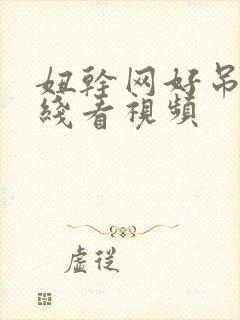 妞幹网好吊
綫看視頻
虛從